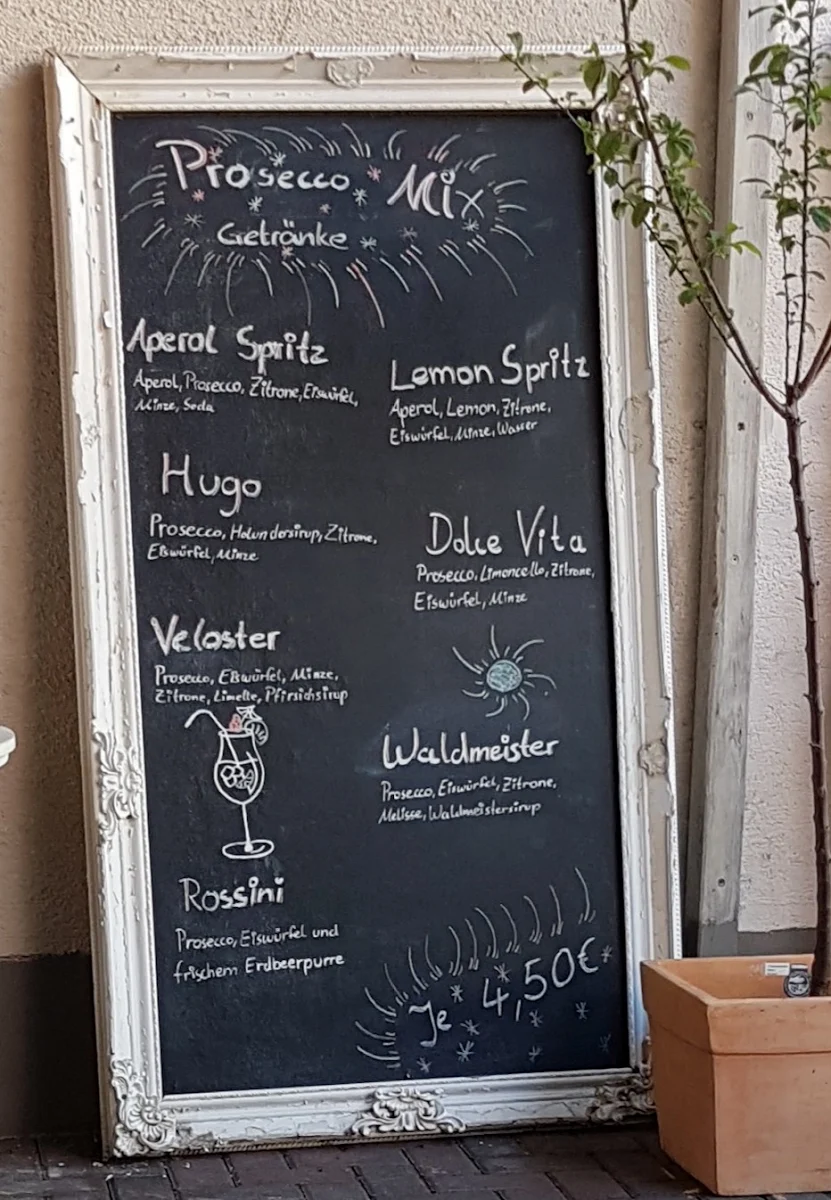 Prosecco Mix
Getränke
Aperol Spritz
Aperol, Prosecco, Zitrone, Eiswürfel,
Minze, Soda
Lemon Spritz
Aperol, Lemon, Zitrone,
Eiswürfel, Minze, Wasser
Hugo
Prosecco, Holundersirup, Zitrone,
Eißwürfel, Minze
Dolce Vita
Prosecco, Limoncello, Zitrone,
Eiswürfel, Minze
Veloster
Prosecco, Eißwürfel, Minze,
Zitrone, Limette, Pfirsichsirup
Waldmeister
Prosecco, Eiswürfel, Zitrone,
Melisse, Waldmeistersirup
Rossini
Prosecco, Eiswürfel und
frischem Erdbeerpurre
Je 4,50€